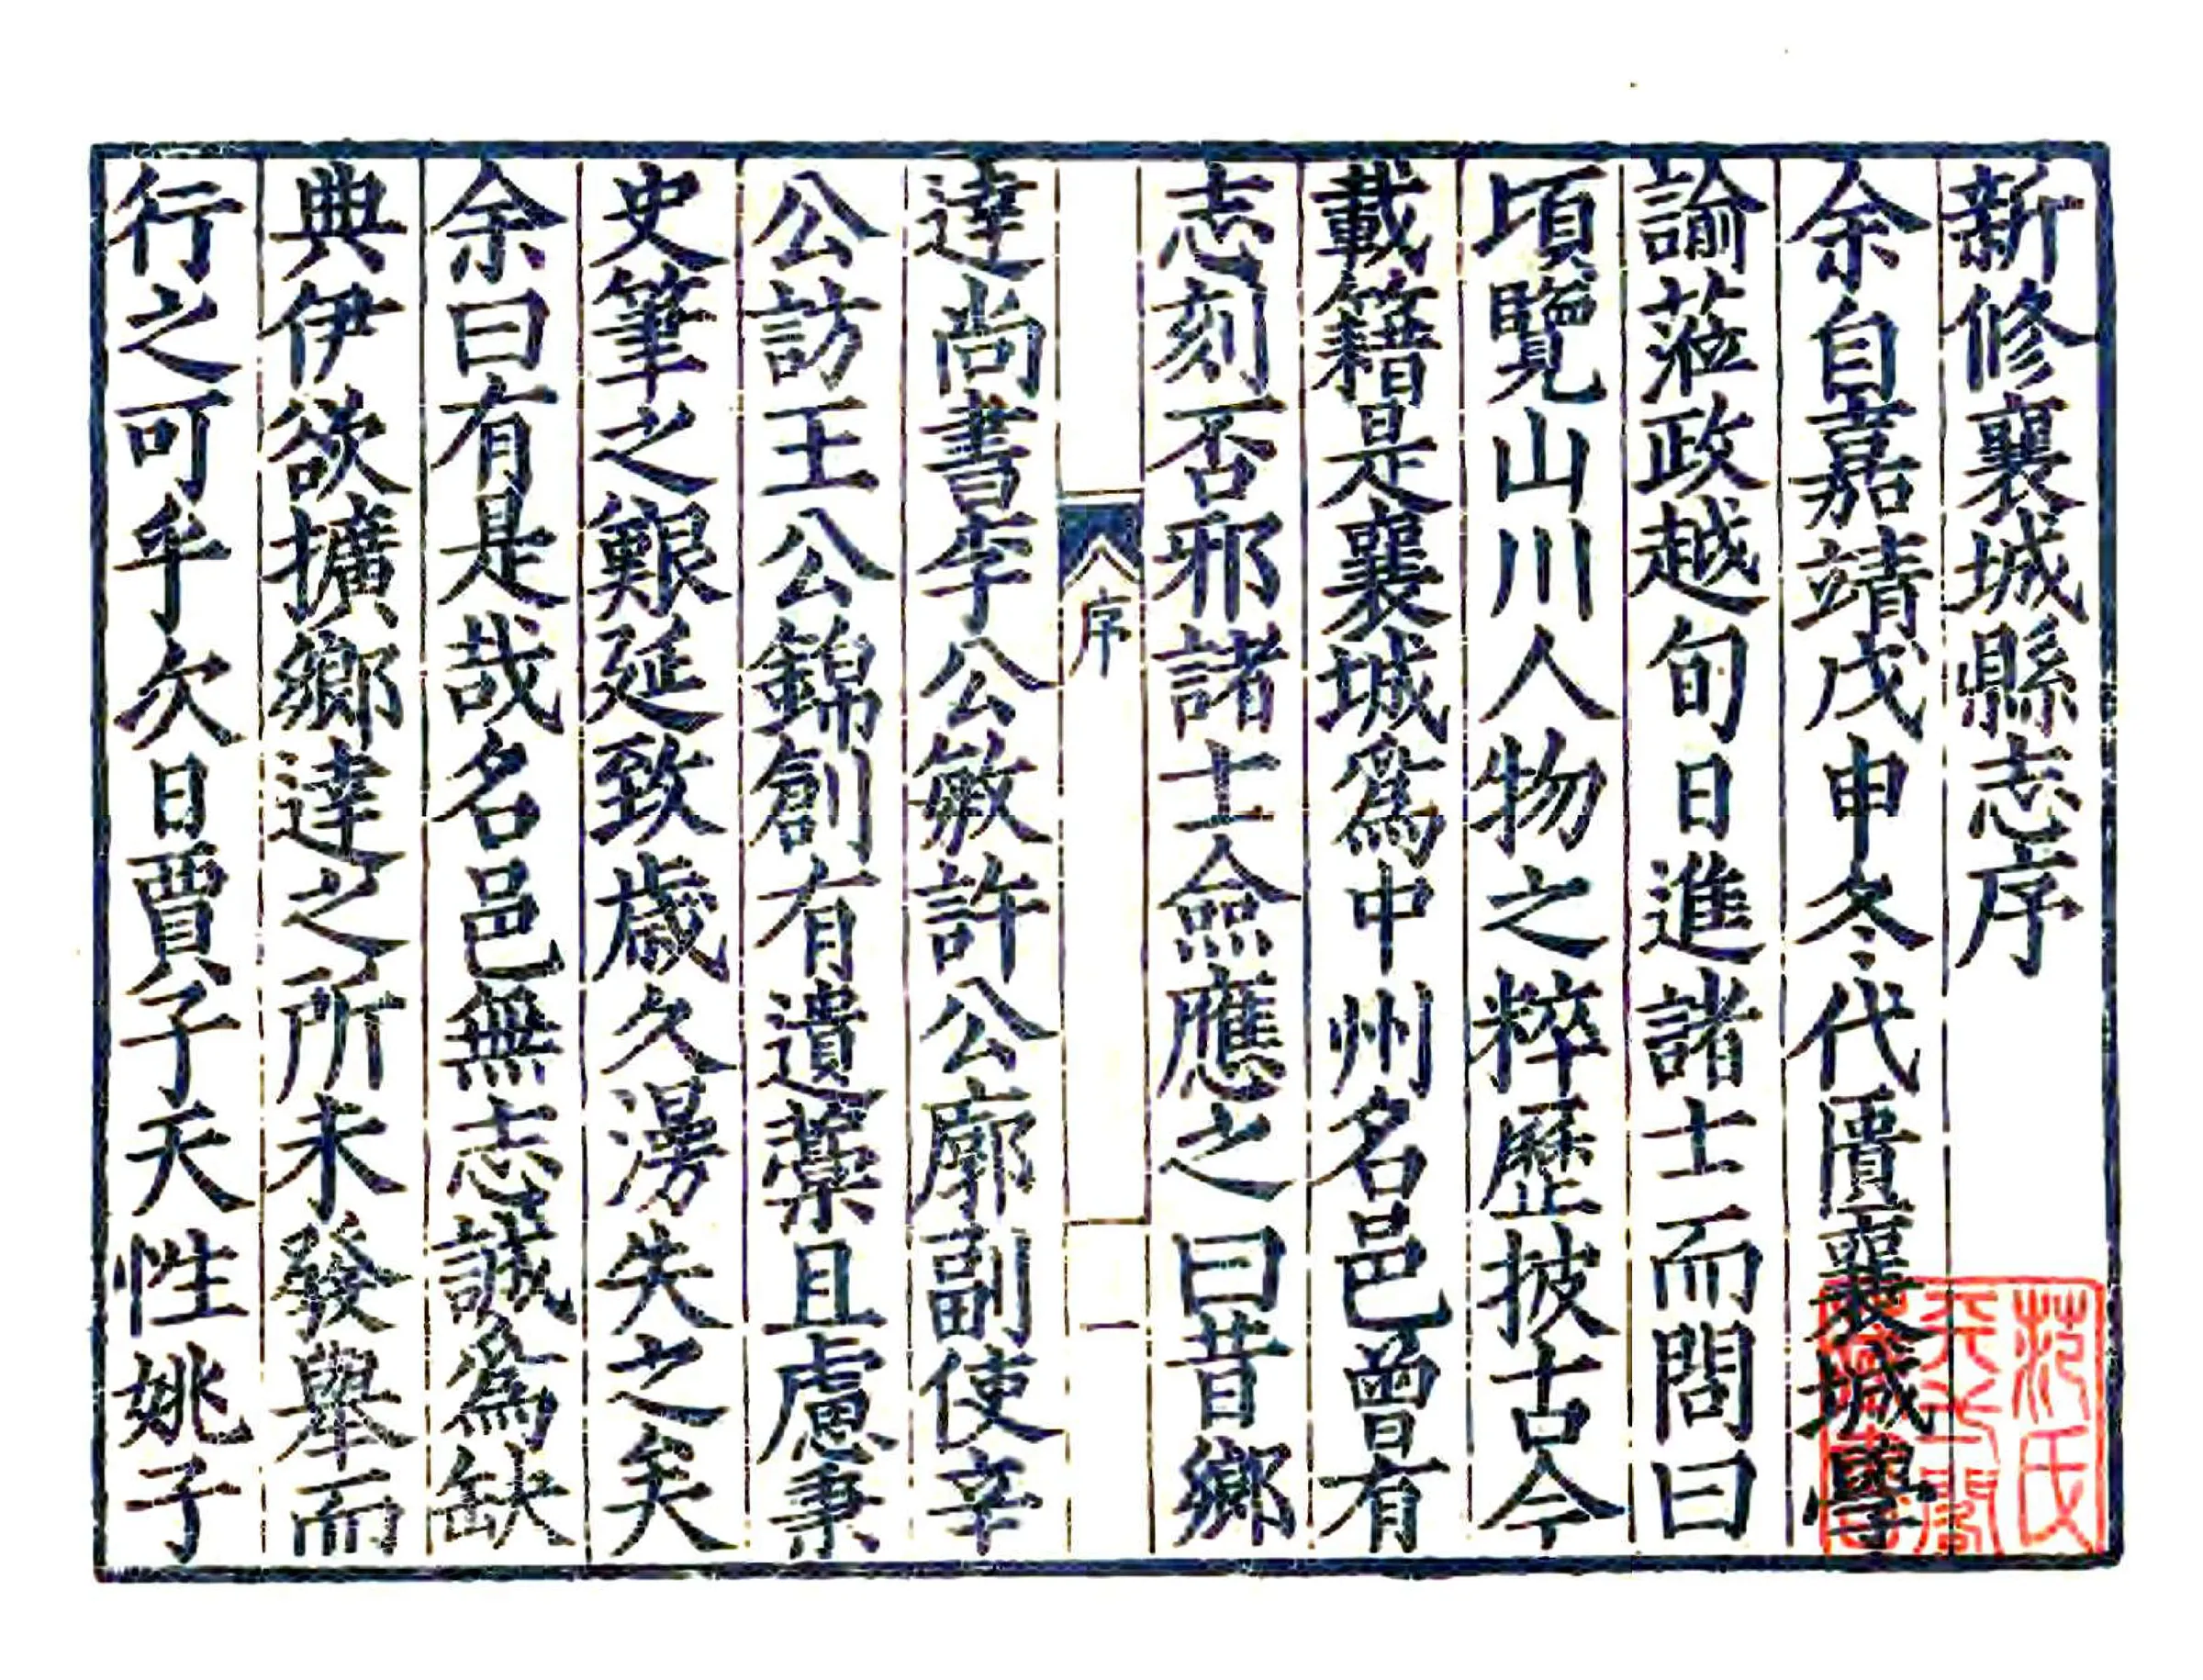 新修襄城縣志序
余自嘉靖戊申冬代匱襄城學
諭蒞政越旬日進諸士而問曰
頃覽山川人物之粹歷披古今
載籍是襄城爲中州名邑曾有
志刻否邪諸士僉應之曰昔鄉
序
一
達尚書李公敏許公廓副使辛
公訪王公錦創有遺藁且慮秉
史筆之艱延致歲久漫失之矣
余曰有是哉名邑無志誠爲缺
典伊欲擴鄉達之所未發舉而
行之可乎次日賈子天性姚子
范氏
天一閣